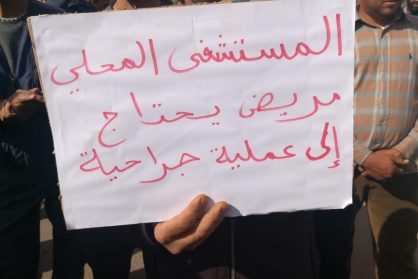 المستشفى المحلي
مريض يحتاج
إلى عملية جراحية